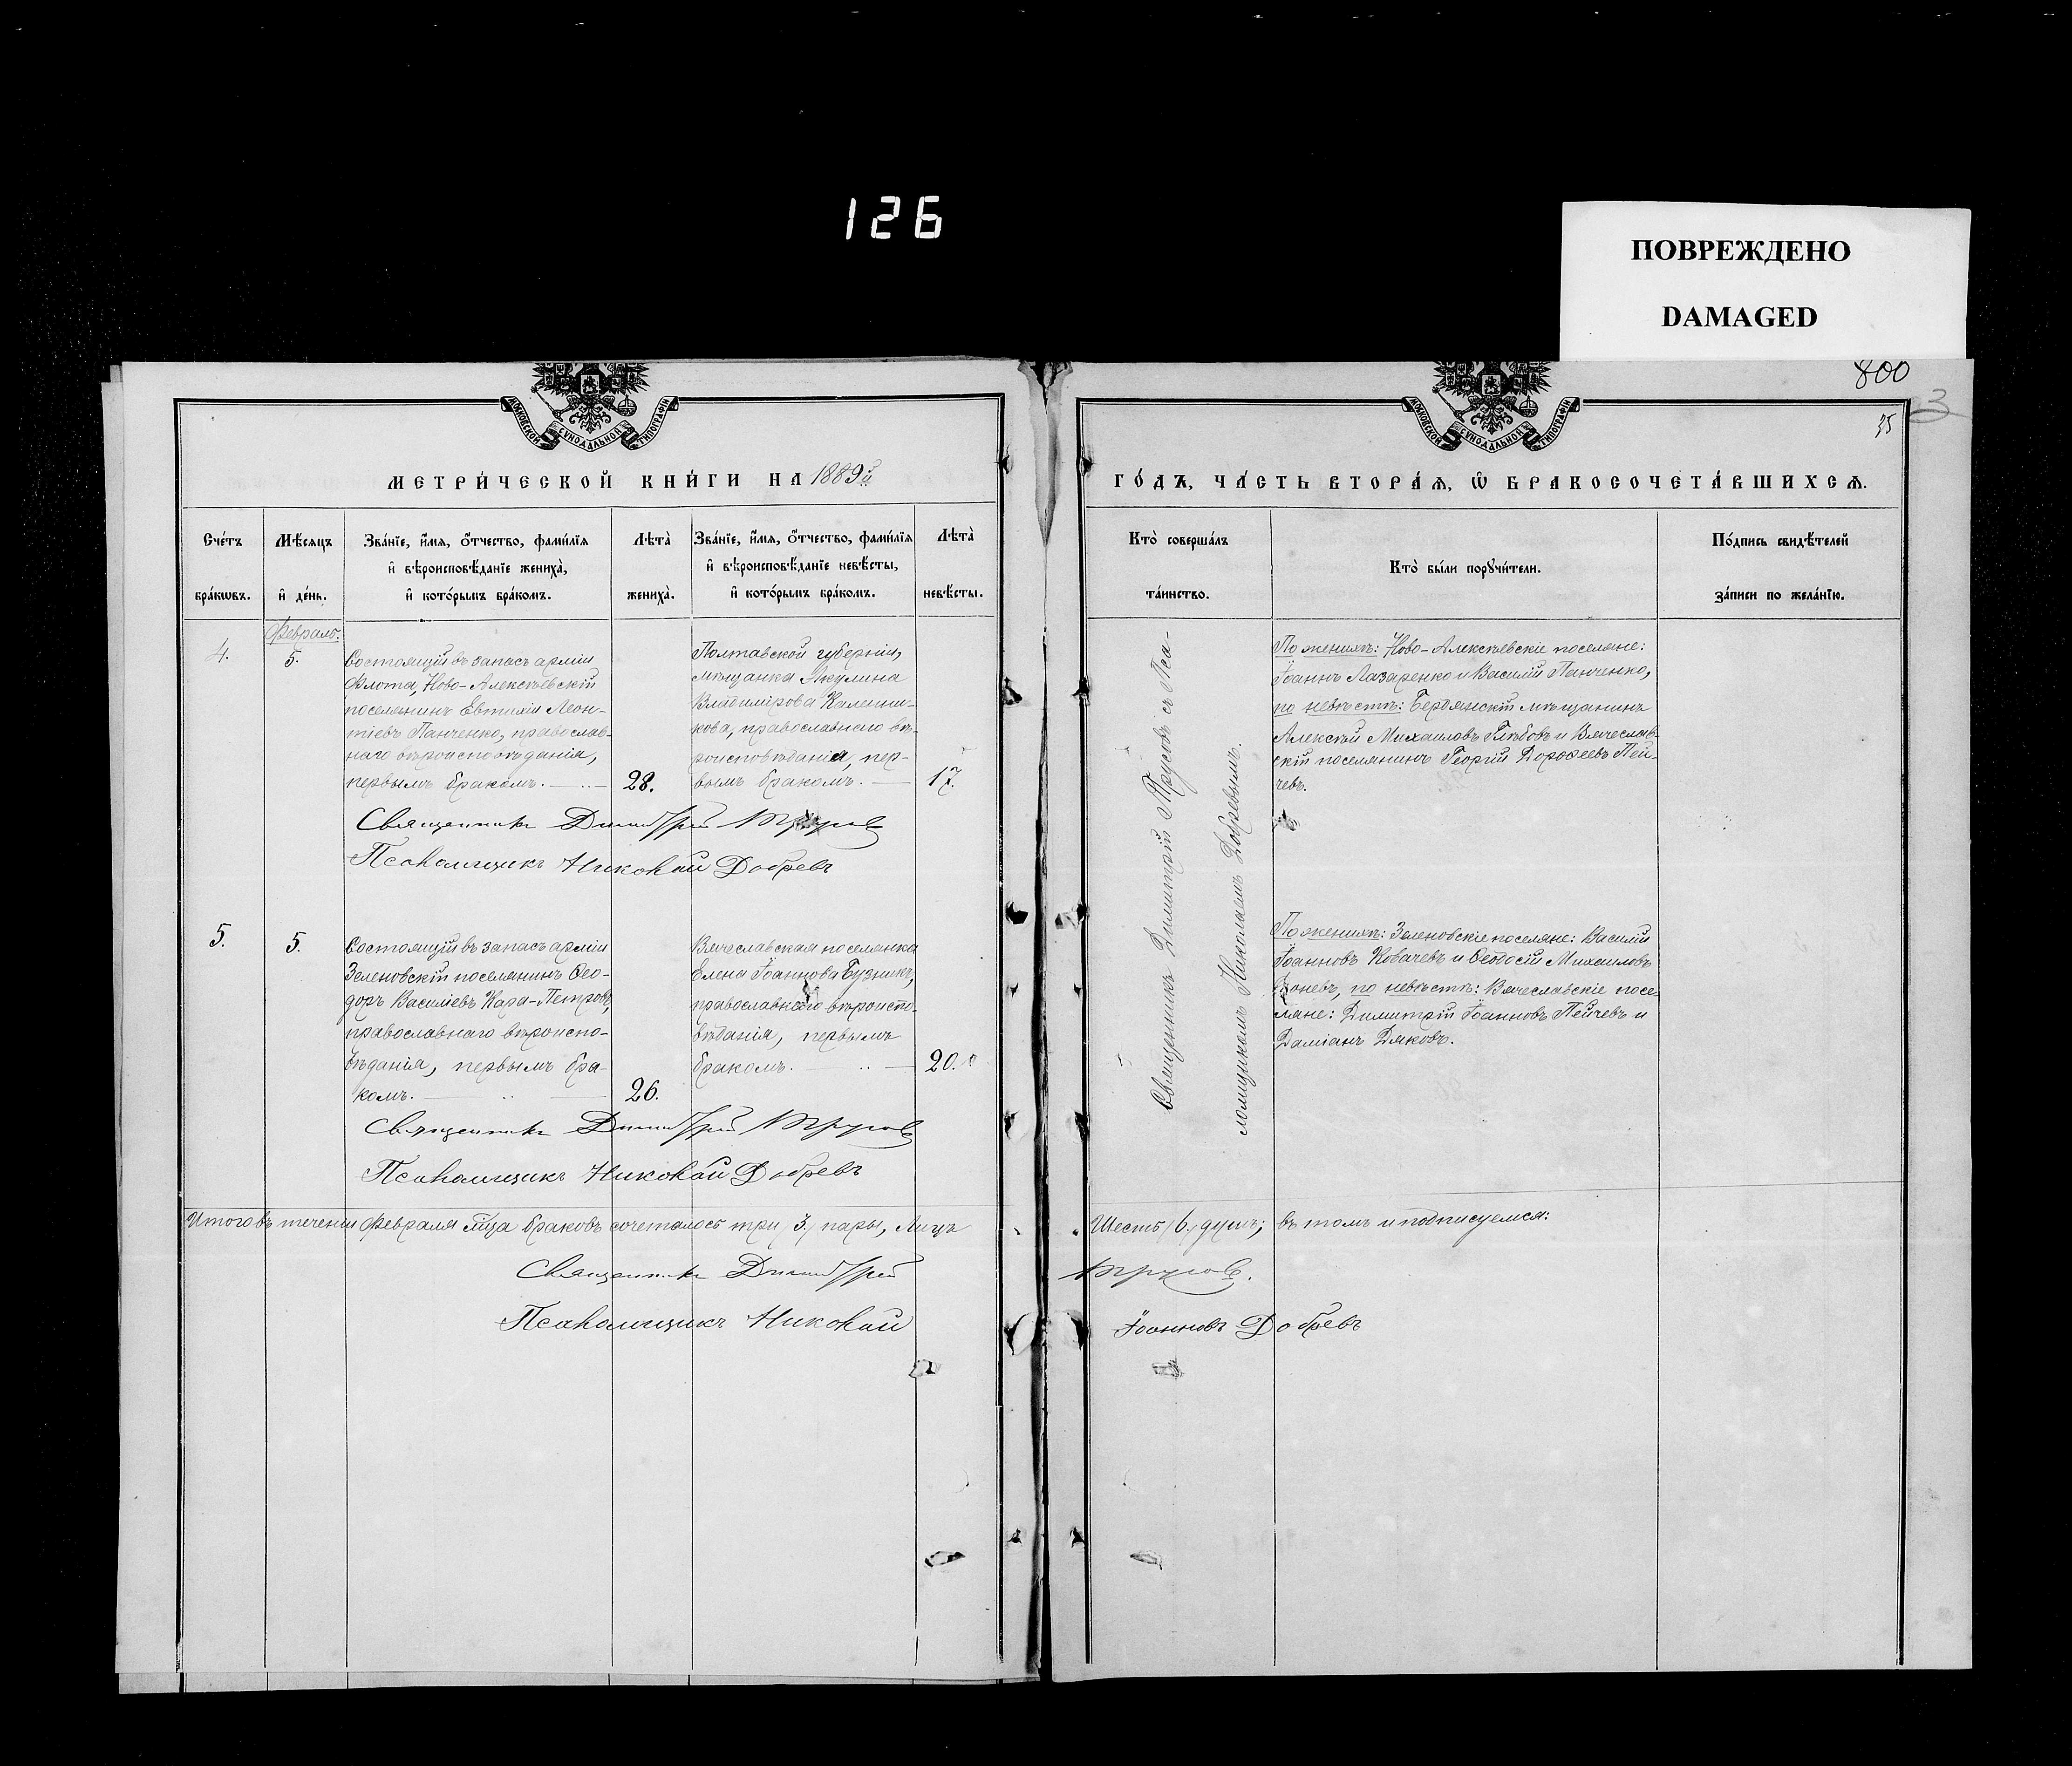 126
ПОВРЕЖДЕНО
DAMAGED
800
3
35
МОСКОВСКОЙ СѴНОДАЛЬНОЙ ТИПОГРАФІИ
МОСКОВСКОЙ СѴНОДАЛЬНОЙ ТИПОГРАФІИ
МЕТРИ́ЧЕСКОЙ КНИ́ГИ НА 1889й
ГО́ДЪ, ЧА́СТЬ ВТОРА́Я, Ѡ БРАКОСОЧЕТА́ВШИХСЯ.
Сче́тъ бра́кѡвъ.
Мѣ́сяцъ и҆ де́нь.
Зва́нїе, и҆́мя, ѻ҆́тчество, фами́лїя
и҆ вѣроисповѣ́данїе жениха̀,
и҆ кото́рымъ бра́комъ.
Лѣта̀ жениха̀.
Зва́нїе, и҆́мя, ѻ҆́тчество, фами́лїя
и҆ вѣроисповѣ́данїе невѣ́сты,
и҆ кото́рымъ бра́комъ.
Лѣта̀ невѣ́сты.
Кто̀ соверша́лъ
та́инство.
Кто̀ бы́ли порꙋчи́тели.
По́дпись свидѣ́телей
за́писи по жела́нїю.
Февраль.
4.
5.
Состоящій въ запасѣ арміи
Флота, Ново-Алексѣевскій
поселянинъ Евтихій Леон-
тіевъ Панченко, православ-
наго вѣроисповѣданія,
первымъ бракомъ.
28.
Полтавской губерніи,
мѣщанка Акулина
Владимірова Калашни-
кова, православнаго вѣ-
роисповѣданія, пер-
вымъ бракомъ.
17.
Священникъ Димитрій Трусовъ
Псаломщикъ Николай Добревъ
Священникъ Димитрій Трусовъ съ Пса-
ломщикомъ Николаемъ Добревымъ.
По женихѣ: Ново-Алексѣевскіе поселяне:
Іоаннъ Лазаренко и Василій Панченко,
по невѣстѣ: Бердянскій мѣщанинъ
Алексѣй Михаиловъ Глѣбовъ и Вячеслав-
скій поселянинъ Георгій Дорофеевъ Пей-
чевъ.
5.
5.
Состоящій въ запасѣ арміи
Зеленовскій поселянинъ Ѳео-
доръ Василіевъ Кара-Петровъ,
православнаго вѣроиспо-
вѣданія, первымъ бра-
комъ.
26.
Вячеславская поселянка
Елена Іоаннова Бузникъ,
православнаго вѣроиспо-
вѣданія, первымъ
бракомъ.
20.
Священникъ Димитрій Трусовъ
Псаломщикъ Николай Добревъ
По женихѣ: Зеленовскіе поселяне: Василій
Іоанновъ Ковачевъ и Ѳеодосій Михаиловъ
по невѣстѣ: Вячеславскіе посе-
ляне: Димитрій Іоанновъ Пейчевъ и
Даміанъ Дяковъ.
Итого въ теченіи Февраля м̃ца браковъ сочеталось три /3./ пары, Лицъ
Шесть /6./ душъ; въ томъ и подписуемся:
Священникъ Димитрій
Трусовъ.
Псаломщикъ Николай
Іоанновъ Добревъ